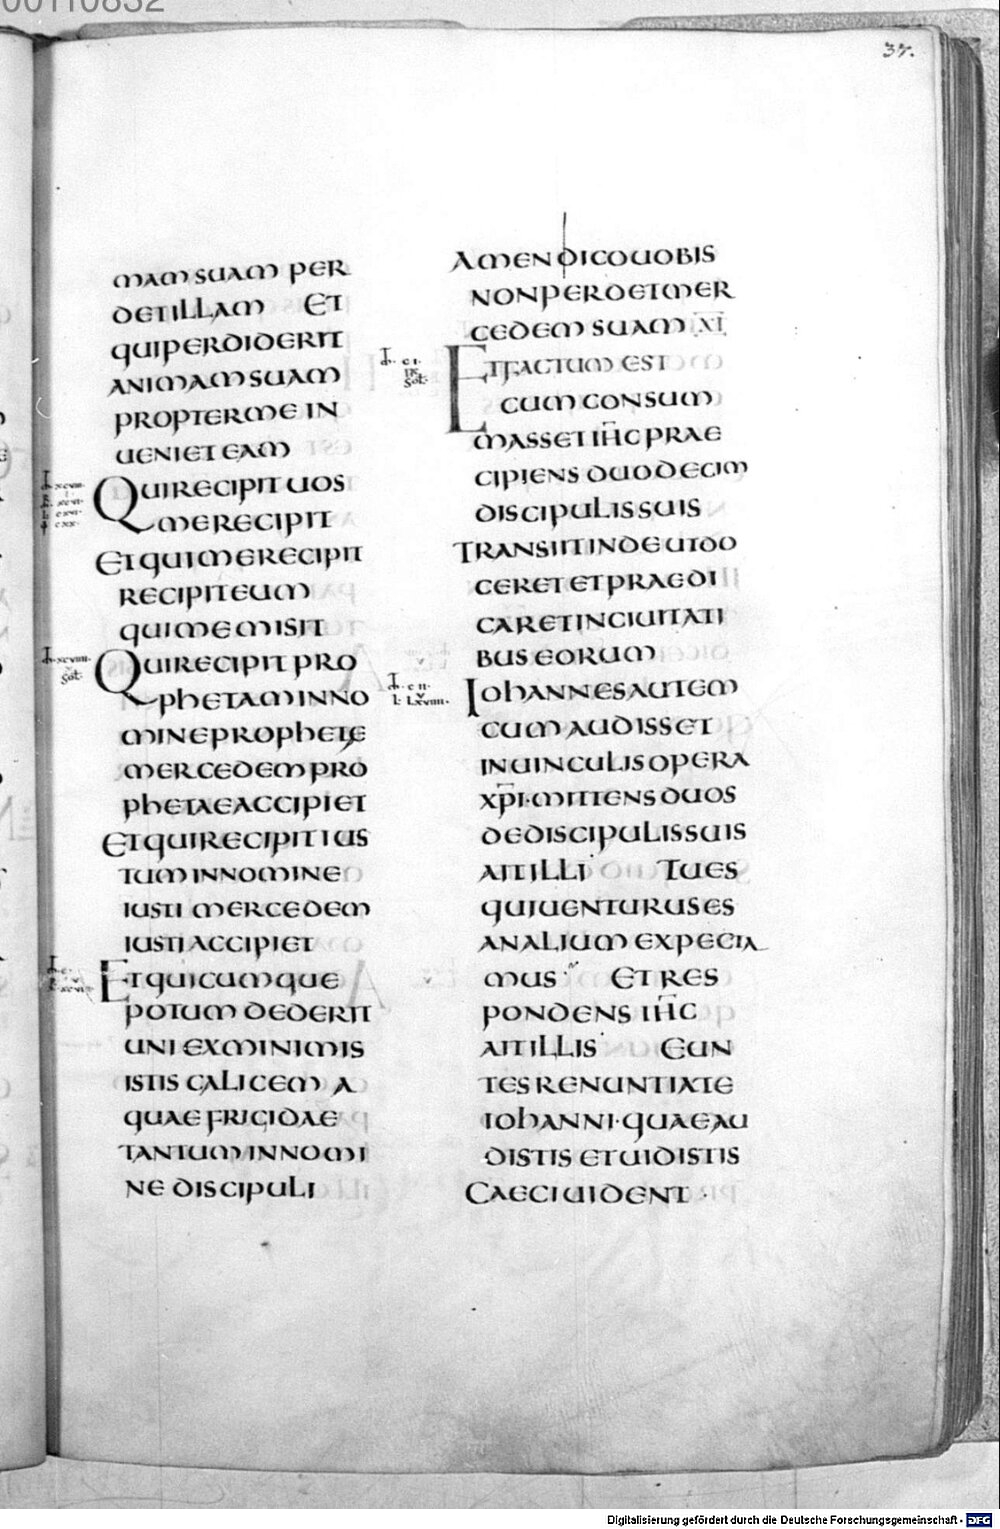 00110832
37.
MAM SUAM PER
DET ILLAM ET
QUI PERDIDERIT
ANIMAM SUAM
PROPTER ME IN
UENIET EAM
QUI RECIPIT UOS
ME RECIPIT
ET QUI ME RECIPIT
RECIPIT EUM
QUI ME MISIT
QUI RECIPIT PRO
PHETAM IN NO
MINE PROPHETE
MERCEDEM PRO
PHETAE ACCIPIET
ET QUI RECIPIT IUS
TUM IN NOMINE
IUSTI MERCEDEM
IUSTI ACCIPIET
ET QUICUMQUE
POTUM DEDERIT
UNI EX MINIMIS
ISTIS CALICEM A
QUAE FRIGIDAE
TANTUM IN NOMI
NE DISCIPULI
AMEN DICO UOBIS
NON PERDET MER
CEDEM SUAM XI
ET FACTUM EST
CUM CONSUM
MASSET IHC PRAE
CIPIENS DUODECIM
DISCIPULIS SUIS
TRANSIIT INDE UT DO
CERET ET PRAEDI
CARET IN CIUITATI
BUS EORUM
IOHANNES AUTEM
CUM AUDISSET
IN UINCULIS OPERA
XPI· MITTENS DUOS
DE DISCIPULIS SUIS
AIT ILLI TU ES
QUI UENTURUS ES
AN ALIUM EXPECTA
MUS ET RES
PONDENS IHC
AIT ILLIS EUN
TES RENUNTIATE
IOHANNI· QUAE AU
DISTIS ET UIDISTIS
CAECI UIDENT ·
Digitalisierung gefördert durch die Deutsche Forschungsgemeinschaft - DFG